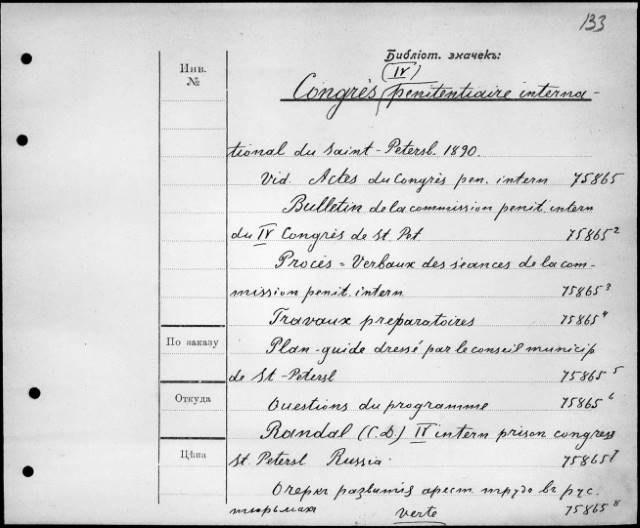 133
Библіот. значекъ:
Инв.
№
(IV)
Congrès penitentiaire interna-
tional du Saint-Petersb. 1890.
Vid. Actes du Congrès pen. intern 75865
Bulletin de la commission penit. intern
du IV Congrès de St Pet 75865²
Procès=Verbaux des séances de la com-
mission penit. intern 75865³
Travaux preparatoires 75865⁴
По заказу
Plan-guide dressé par le conseil municip
de St-Petersb 75865⁵
Откуда
Questions du programme 75865⁶
Randal (C.D.) IV intern prison congress
Цѣна
St. Petersb Russia 75865⁷
Очеркъ развитія арест труда въ рус.
тюрьмахъ 75865⁸
verte